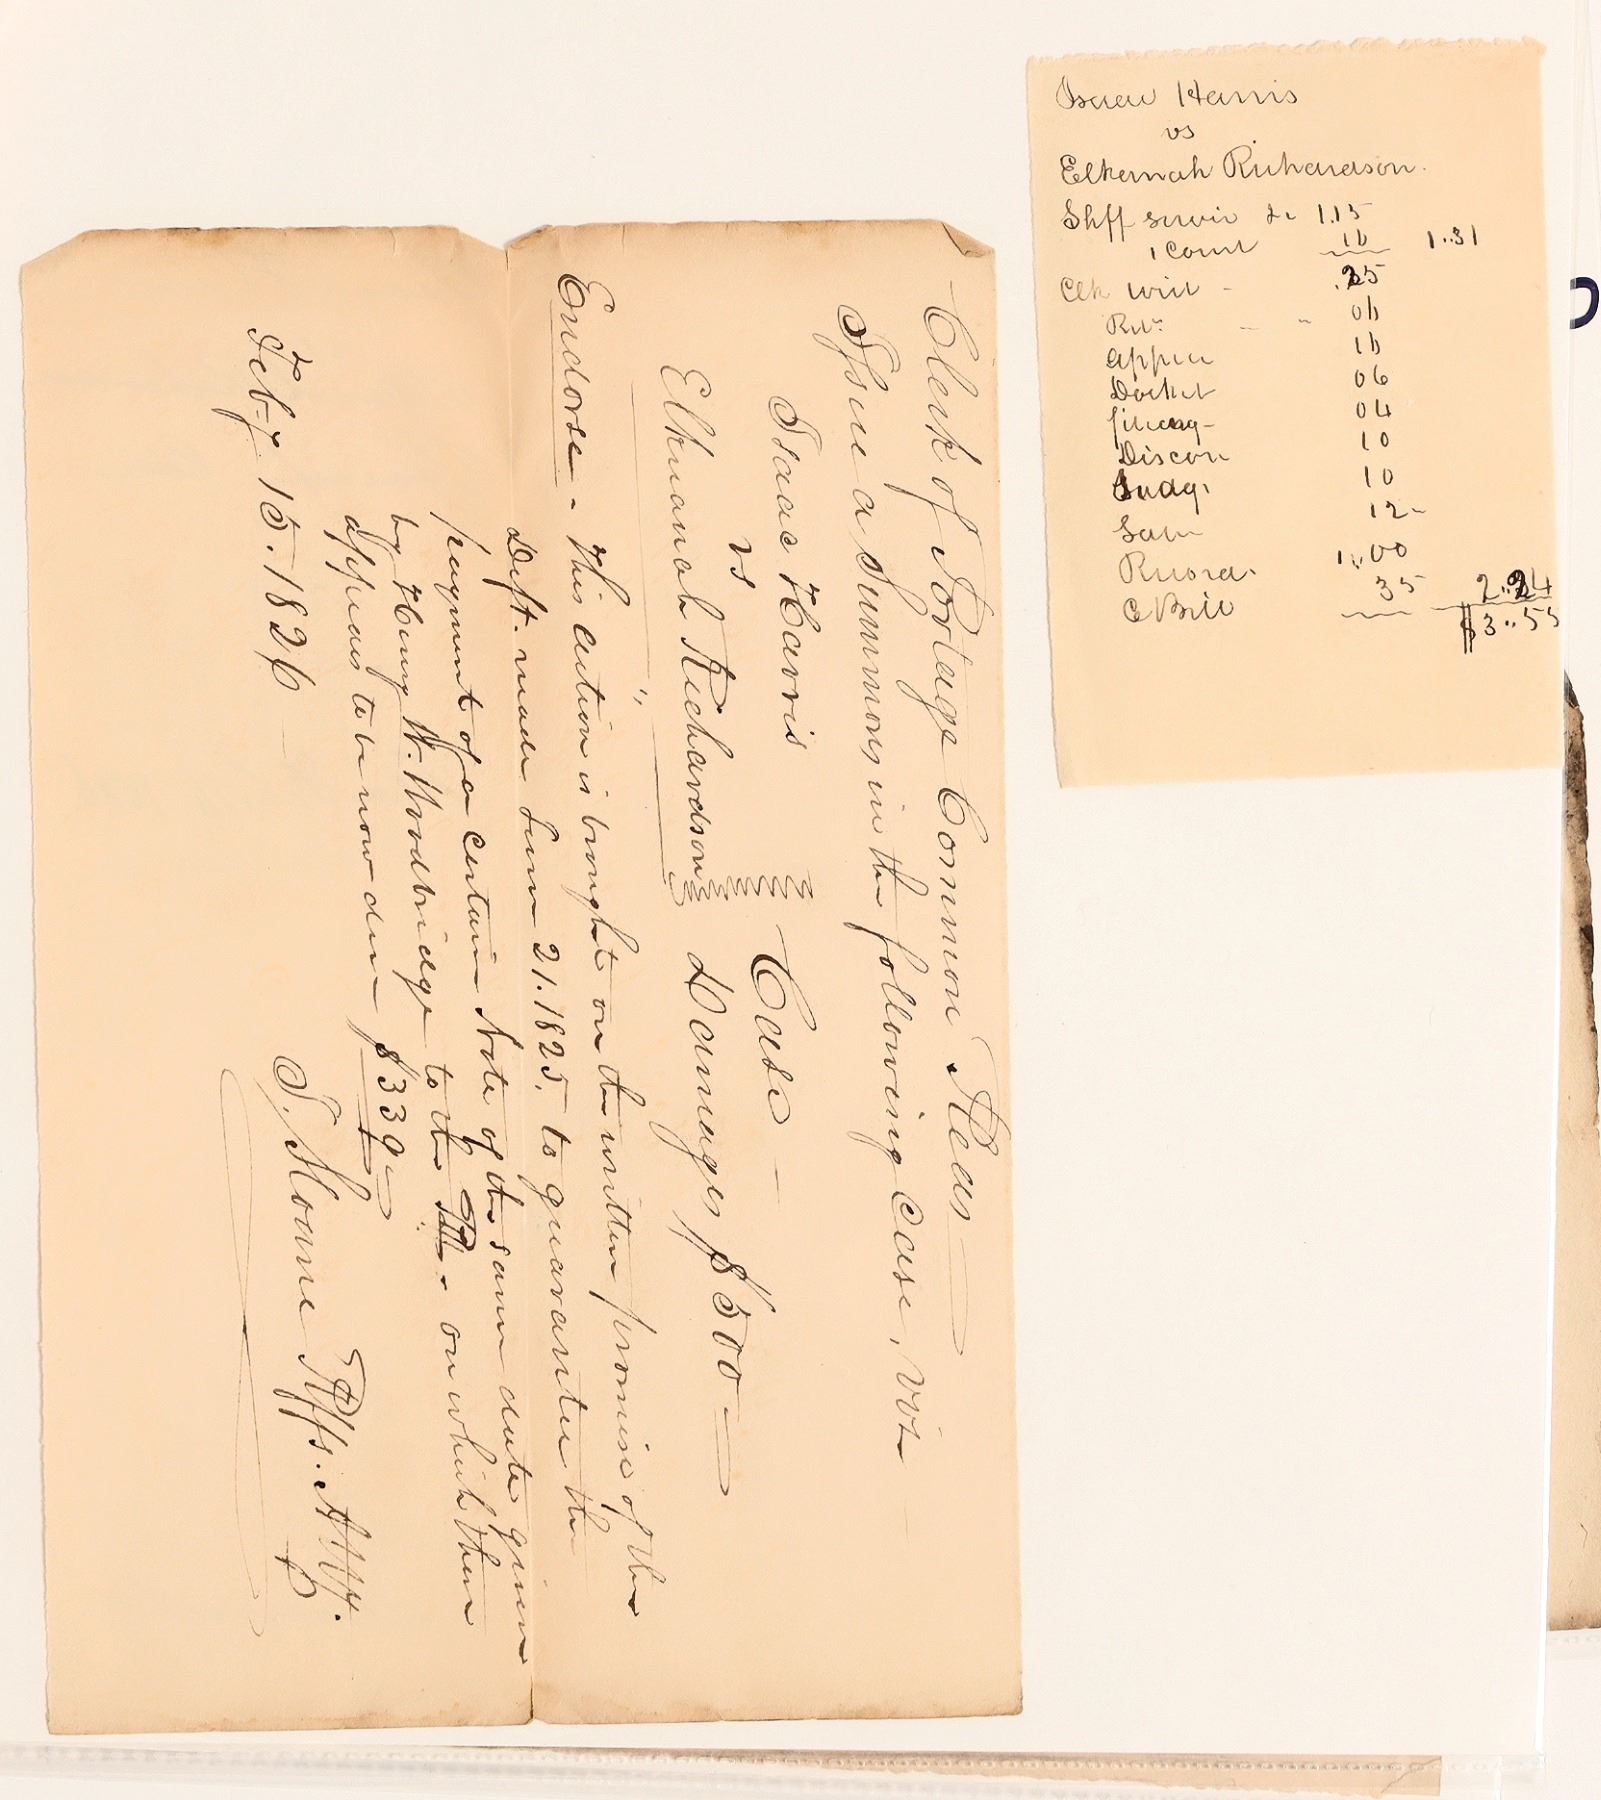 Clerk of Portage Common Pleas
Issue a Summons in the following case, viz
Isaac Harris
vs
Elkanah Richardson
Case
Damages $500
Endorse - This action is brought on the written promise of the
Deft. made June 21. 1825. to guarantee the
payment of a certain Note of the same date given
by Henry W. Woodbridge to the Plff - on which there
appears to be now due $339
Feby. 15. 1826
J. Sloane Plffs. Atty.
Isaac Harris
vs
Elkernah Richardson.
Shff servic &c 1.15
1 Court 16 1..31
Clk writ - .25
Ret. 06
appea 16
Docket 06
fileing 04
Discon 10
Judg. 10
Sam 12
Record. 1..00
C Bill 35 2..24
$3..55